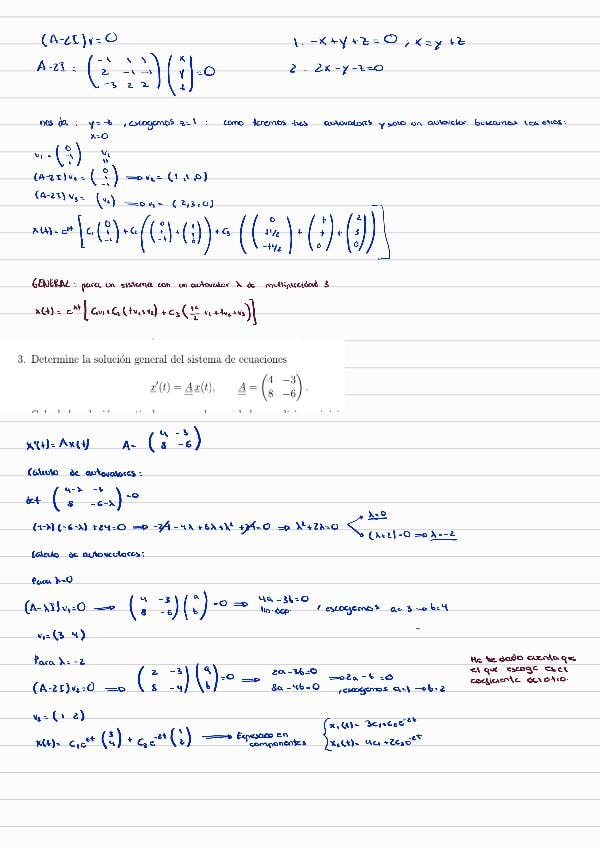 (A-2I)v=0
1. -x+y+z=0 ; x=y+z
A-2I = ( -1 1 1 ; 2 -1 -1 ; -3 2 2 ) ( x y z ) =0
2. 2x-y-z=0
nos da: y=-z , escogemos z=1 : como tenemos tres autovalores y solo un autovector buscamos los otros:
x=0
(A-2I) v₂ = ⇒ v₂ = (1,1,0)
(A-2I) v₃ = (v₂) ⇒ v₃ = (2,3,0)
GENERAL: para un sistema con un autovalor λ de multiplicidad 3
x(t) = e^λt [ c₁v₁+c₂(tv₁+v₂) + c₃( t²/2 v₁+tv₂+v₃)]
3. Determine la solución general del sistema de ecuaciones
x'(t) = A x(t), A = ( 4 −3 ; 8 −6 ) .
x'(t)=Ax(t) A= ( 4 -3 ; 8 -6 )
Cálculo de autovalores:
det ( 4-λ -3 ; 8 -6-λ ) =0
(4-λ)(-6-λ)+24=0 ⇒ -24-4λ+6λ+λ²+24=0 ⇒ λ²+2λ=0
λ=0
(λ+2)=0 ⇒ λ=-2
Cálculo de autovectores:
Para λ=0
(A-λI)v₁=0 ⇒ ( 4 -3 ; 8 -6 ) ( a b ) =0 ⇒ 4a-3b=0 , escogemos a=3 → b=4
lin. dep.
v₁=(3 4)
Para λ=-2
(A-2I)v₂=0 ⇒ ( 2 -3 ; 8 -4 ) ( a b ) =0 ⇒ 2a-3b=0 ⇒ 2a-b=0
8a-4b=0 , escogemos a=1 → b=2
Me he dado cuenta que
el que escoge es el
coeficiente del otro.
v₂=(1 2)
x(t)= c₁e^0t ( 3 4 ) + c₂e^-2t ( 1 2 ) ⇒ Expresado en componentes
x₁(t)= 3c₁+c₂e^-2t
x₂(t)= 4c₁+2c₂e^-2t